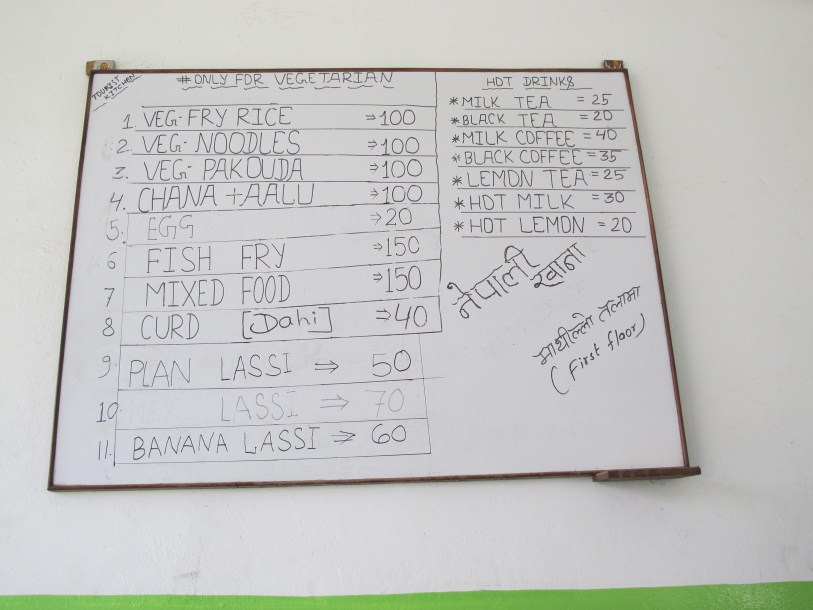 TOURIST
KITCHEN
#ONLY FOR VEGETARIAN
1. VEG-FRY RICE ⇒100
2. VEG-NOODLES ⇒100
3. VEG-PAKOUDA ⇒100
4. CHANA+AALU ⇒100
5. EGG ⇒20
6 FISH FRY ⇒150
7 MIXED FOOD ⇒150
8 CURD [Dahi] ⇒40
9. PLAN LASSI ⇒ 50
10. LASSI ⇒ 70
11. BANANA LASSI ⇒ 60
HOT DRINKS
*MILK TEA =25
*BLACK TEA =20
*MILK COFFEE =40
*BLACK COFFEE=35
*LEMON TEA=25
*HOT MILK =30
*HOT LEMON =20
नेपाली
खाना
माथील्लो तलामा
(First floor)